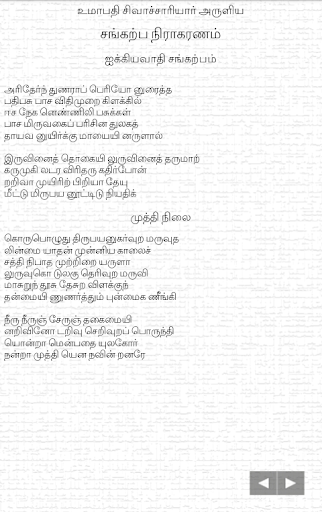 உமாபதி சிவாச்சாரியார் அருளிய
சங்கற்ப நிராகரணம்
ஐக்கியவாதி சங்கற்பம்
அரிதேர்ந் துணராப் பெரியோ னுரைத்த
பதிபசு பாச விதிமுறை கிளக்கில்
ஈச நேக னெண்ணிலி பசுக்கள்
பாச மிருவகைப் பரிசின துலகத்
தாயவ னுயிர்க்கு மாயையி னருளால்
இருவினைத் தொகையி லுருவினைத் தருமாற்
கருமுகி லடர விரிதரு கதிர்போன்
றறிவா முயிரிற் பிறியா தேயு
மீட்டு மிருபய னூட்டிடு நியதிக்
முத்தி நிலை
கொருபொழுது திருபயனுகர்வுற மருவுத
லின்மை யாதன் முன்னிய காலைச்
சத்தி நிபாத முற்றிறை யருளா
லுருவுகொ டுலகு தெரிவுற மருவி
மாசுறுந் தூசு தேசுற விளக்குந்
தன்மையி னுணர்த்தும் புன்மைக ணீங்கி
நீரு நீருஞ் சேருந் தகைமையி
னறிவினோ டறிவு செறிவுறப் பொருந்தி
யொன்றா மென்பதை யுலகோர்
நன்றா முத்தி யென நவின் றனரே